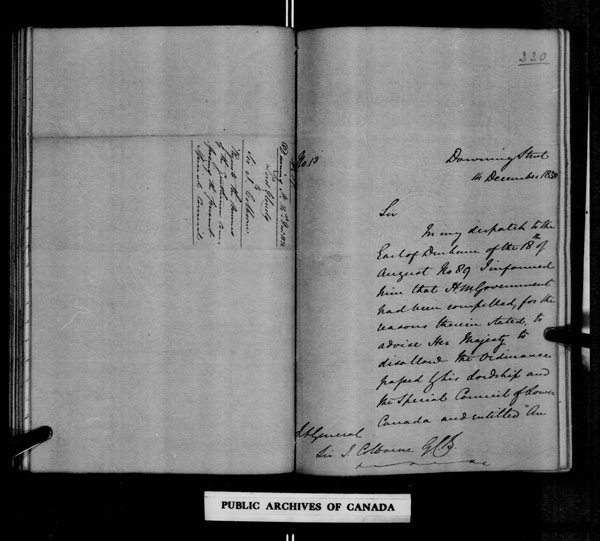 Downing St 14 Dec 1838
Lord Glenelg
to
Sir J. Colborne
Transmits the names
of the gentlemen com-
posing the
Special Council
220
No. 13
Downing Street
14 December 1838
Sir
In my despatch to the
Earl of Durham of the 18th of
August No 89 I informed
him that H.M. Government
had been compelled, for the
reasons therein stated, to
advise Her Majesty to
disallow the Ordinance
passed by his Lordship and
the Special Council of Lower
Canada and entitled "An
Lt General
Sir J. Colborne GCB.
PUBLIC ARCHIVES OF CANADA